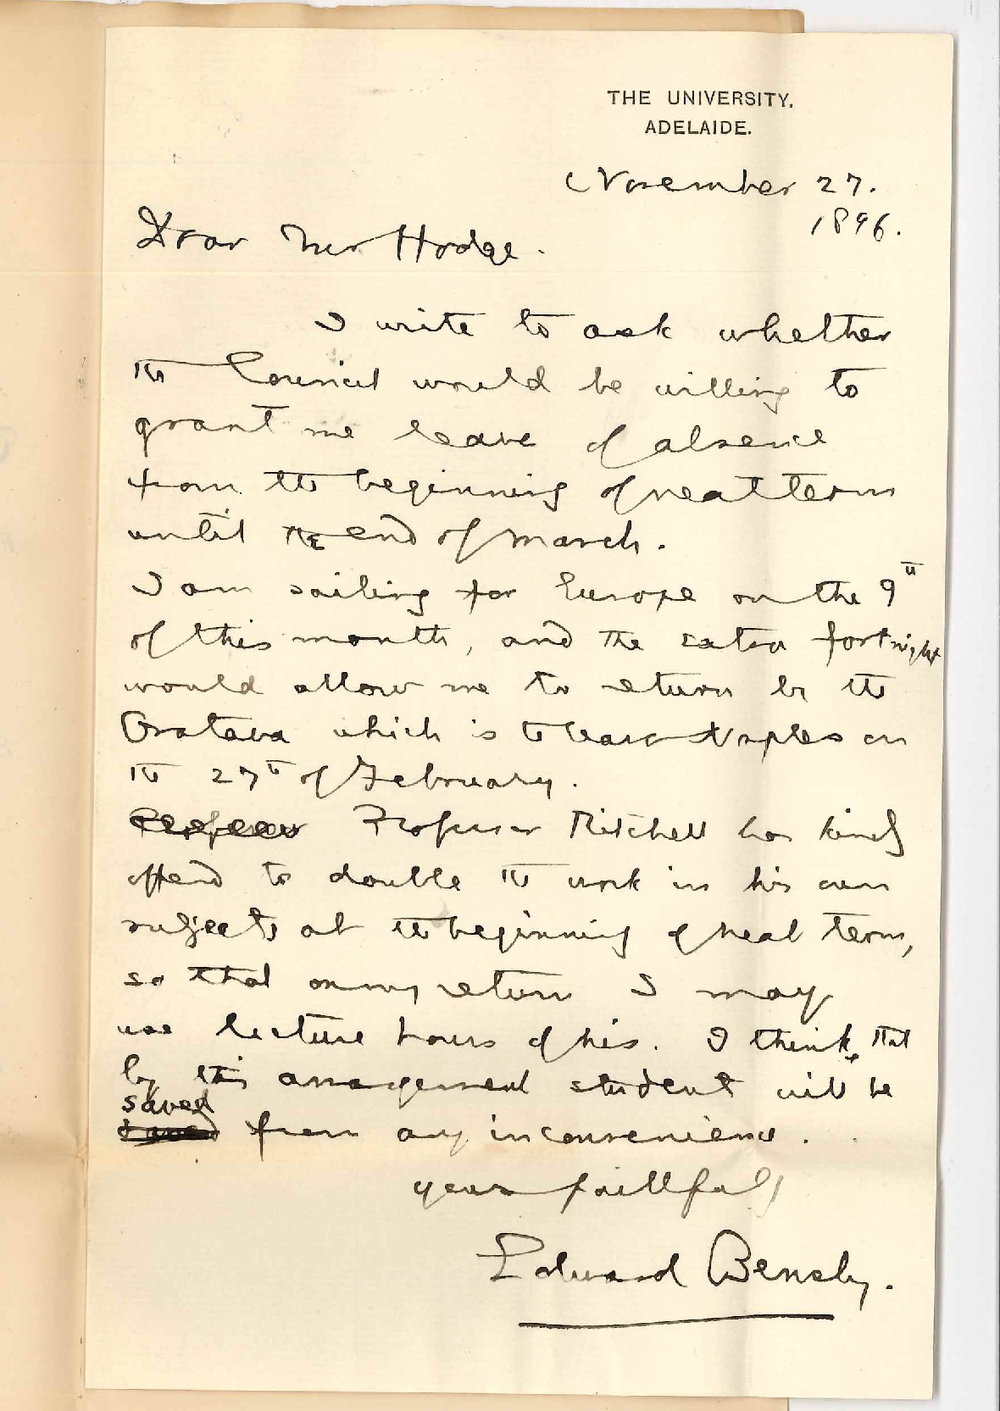 THE UNIVERSITY,
ADELAIDE.
November 27.
1896.
Dear Mr Hodge.
I write to ask whether
the Council would be willing to
grant me leave of absence
from the beginning of next term
until the end of March.
I am sailing for Europe on the 9th
of this month, and the extra fortnight
would allow me to return by the
Orotava which is to leave Naples on
the 27th of February.
Professor Professor Mitchell has kindly
offered to double the work in his own
subjects at the beginning of next term,
so that on my return I may
use lecture hours of his. I think that
by this arrangement student will be
saved
saved from any inconvenience.
yours faithfully
Edward Bensly.